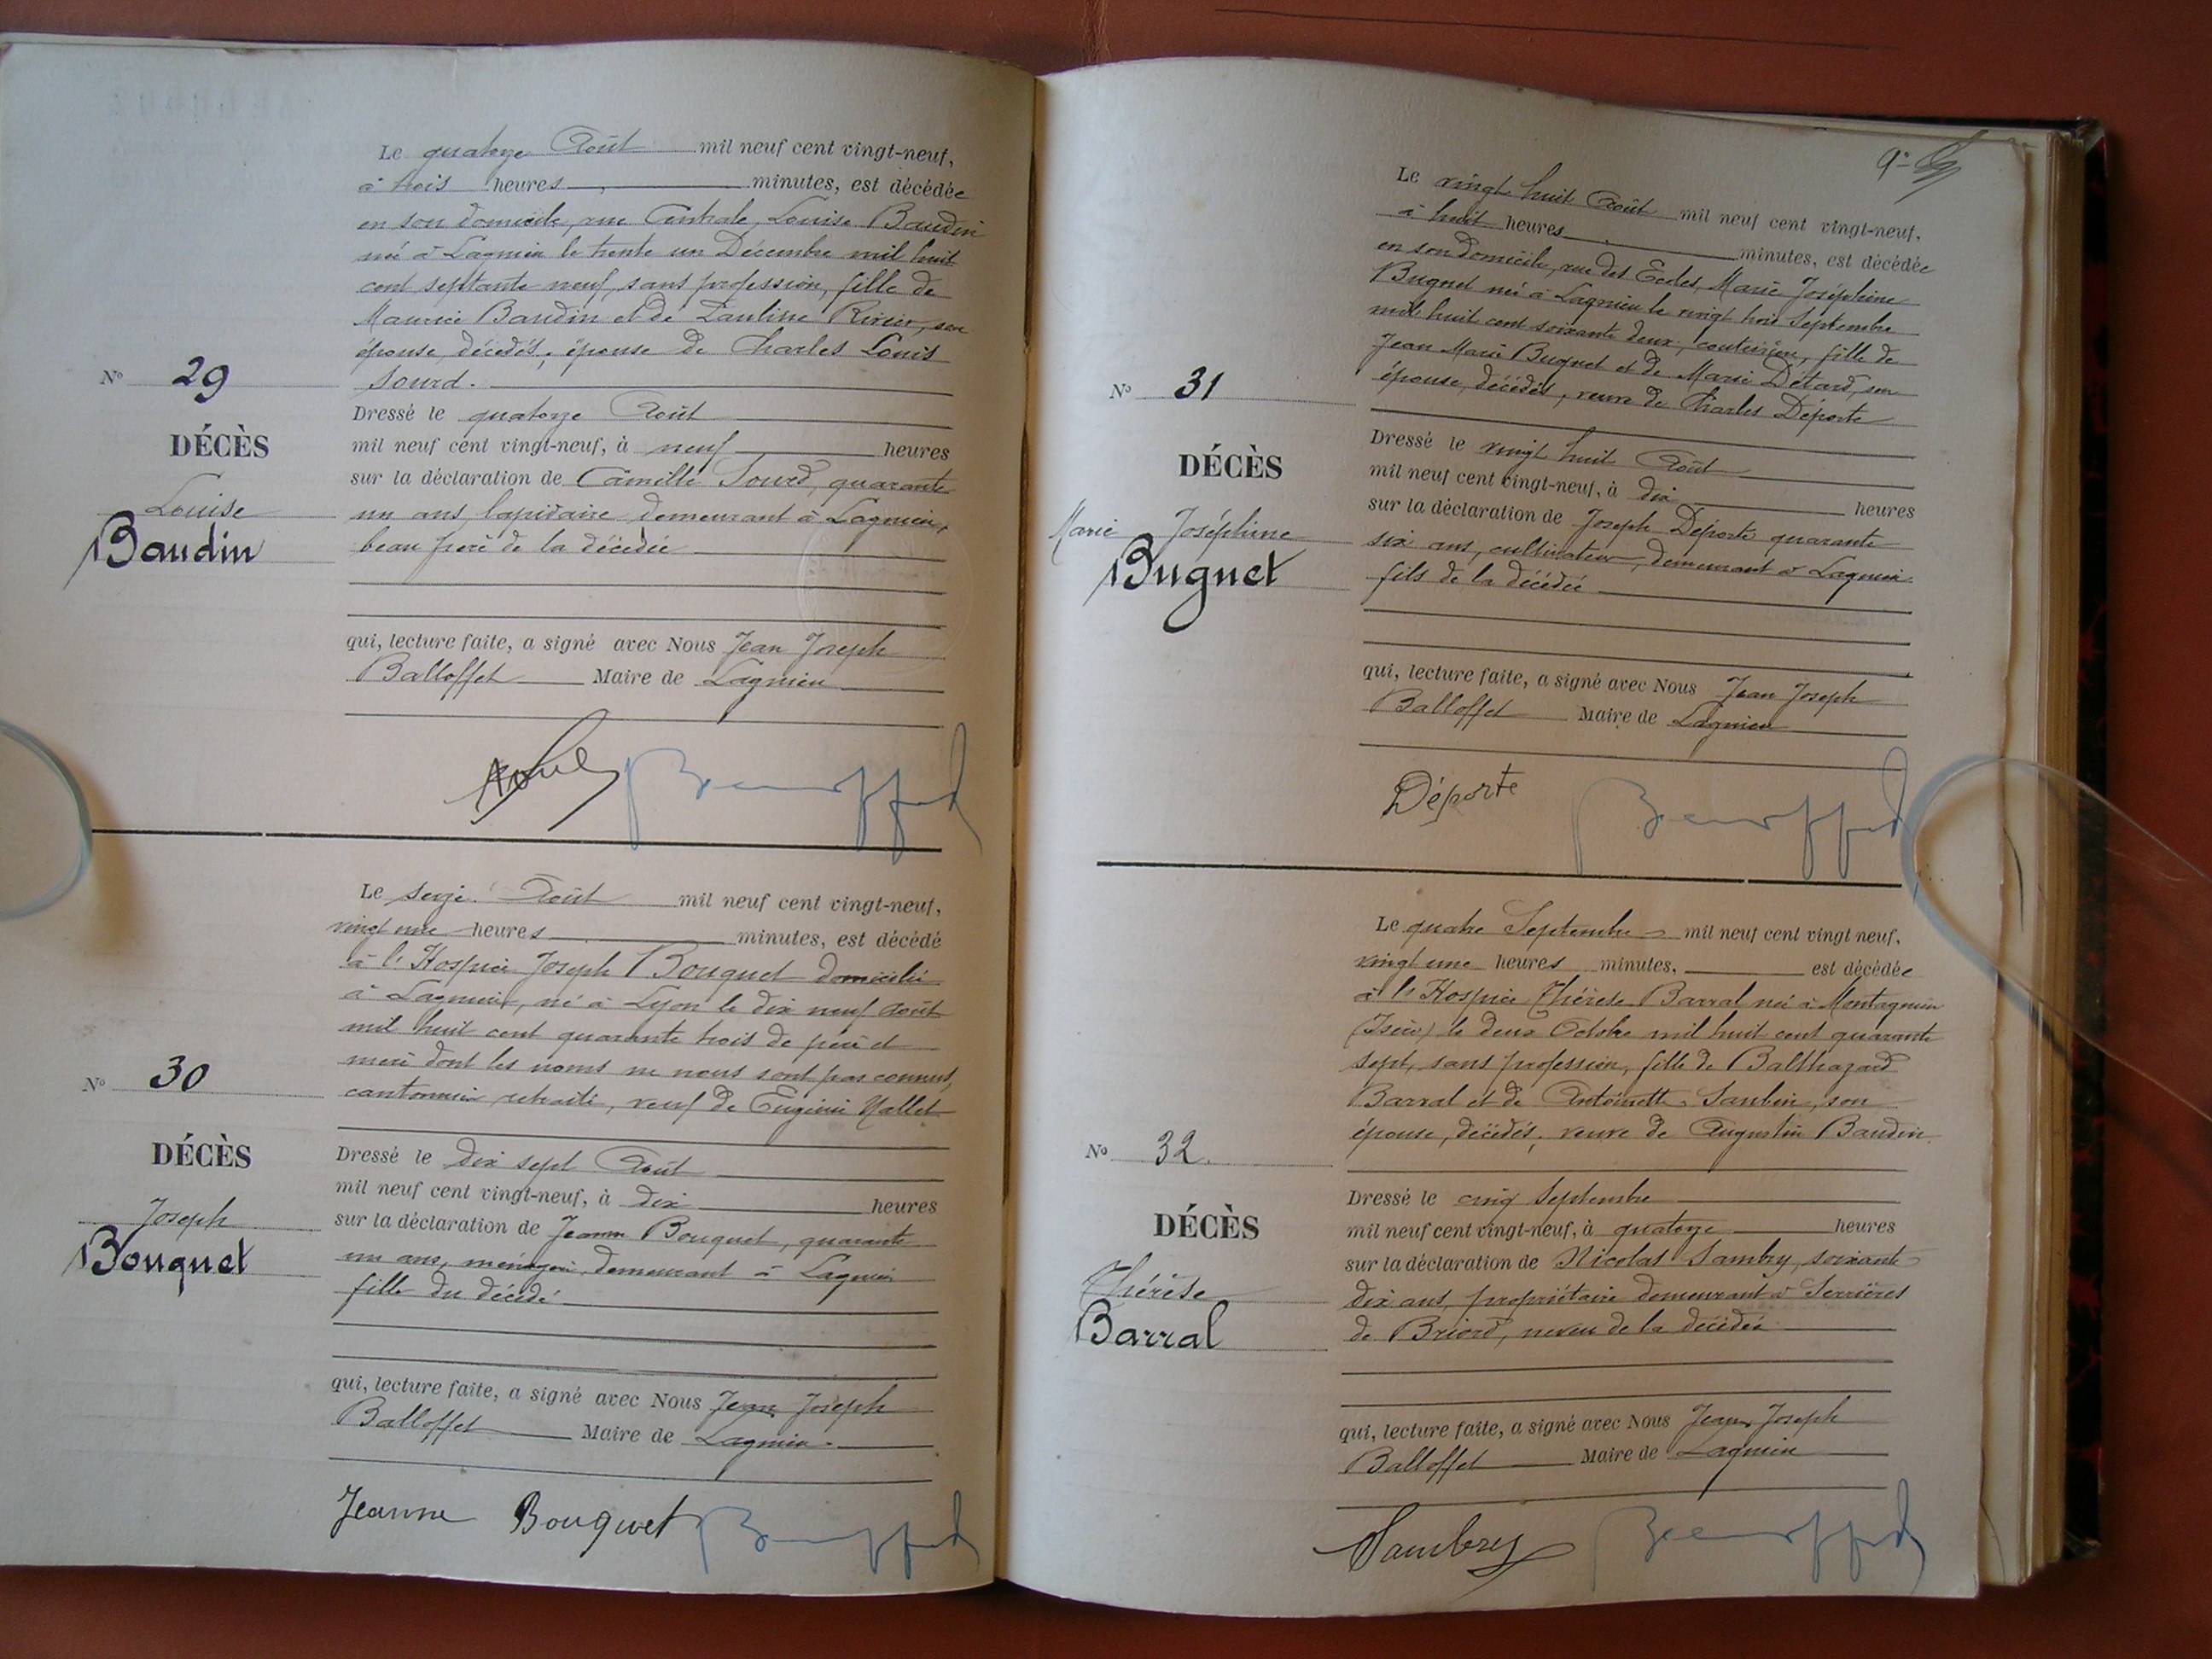 Le quatorze Août mil neuf cent vingt-neuf,
à trois heures minutes, est décédée
en son domicile, rue Centrale, Louise Baudin
née à Lagnieu le trente un Décembre mil huit
cent septante neuf, sans profession, fille de
Maurice Baudin et de Pauline Rivier, son
épouse, décédés, épouse de Charles Louis
Sourd.
Nº 29
DÉCÈS
Louise
Baudin
Dressé le quatorze Août
mil neuf cent vingt-neuf, à neuf heures
sur la déclaration de Camille Sourd, quarante
un ans, lapidaire, demeurant à Lagnieu,
beau frère de la décédée
qui, lecture faite, a signé avec Nous Jean Joseph
Balloffet Maire de Lagnieu
Le seize Août mil neuf cent vingt-neuf,
vingt une heures minutes, est décédé
à l'Hospice Joseph Bouquet domicilié
à Lagnieu, né à Lyon le dix neuf août
mil huit cent quarante trois de père et
mère dont les noms ne nous sont pas connus,
cantonnier retraité, veuf de Eugénie Nallet
Nº 30
DÉCÈS
Joseph
Bouquet
Dressé le dix sept Août
mil neuf cent vingt-neuf, à dix heures
sur la déclaration de Jeanne Bouquet, quarante
un ans, ménagère, demeurant à Lagnieu
fille du décédé
qui, lecture faite, a signé avec Nous Jean Joseph
Balloffet Maire de Lagnieu.
Jeanne Bouquet
Le vingt huit Août mil neuf cent vingt-neuf,
à huit heures minutes, est décédée
en son domicile, rue des Ecoles, Marie Joséphine
Buguet née à Lagnieu le vingt trois Septembre
mil huit cent soixante deux, couturière, fille de
Jean Marie Buguet et de Marie Détard, son
épouse, décédés, veuve de Charles Déporte
Nº 31
DÉCÈS
Marie Joséphine
Buguet
Dressé le vingt huit Août
mil neuf cent vingt-neuf, à dix heures
sur la déclaration de Joseph Déporte quarante
six ans, cultivateur, demeurant à Lagnieu
fils de la décédée
qui, lecture faite, a signé avec Nous Jean Joseph
Balloffet Maire de Lagnieu
Déporte
Le quatre Septembre mil neuf cent vingt neuf,
vingt une heures minutes, est décédée
à l'Hospice Thérèse Barral née à Montagnieu
(Isère) le deux Octobre mil huit cent quarante
sept, sans profession, fille de Balthazard
Barral et de Antoinette Saubin, son
épouse, décédés, veuve de Augustin Baudin
Nº 32.
DÉCÈS
Thérèse
Barral
Dressé le cinq Septembre
mil neuf cent vingt-neuf, à quatorze heures
sur la déclaration de Nicolas Sambry, soixante
dix ans, propriétaire demeurant à Serrières
de Briord, neveu de la décédée
qui, lecture faite, a signé avec Nous Jean Joseph
Balloffet Maire de Lagnieu
Sambry